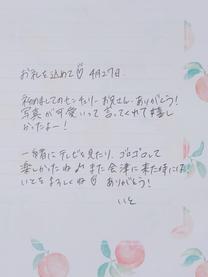 お礼を込めて♡ 4月27日
初めましてのセンチュリーお兄さん、ありがとう!
写真が可愛いって言ってくれて嬉し
かったよー!
一緒にテレビを見たり、ゴロゴロして
楽しかったね♪また会津に来た時には、
いとをよろしくね♡ ありがとう!
いと